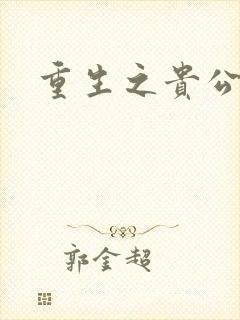 重生之貴公
郭金超